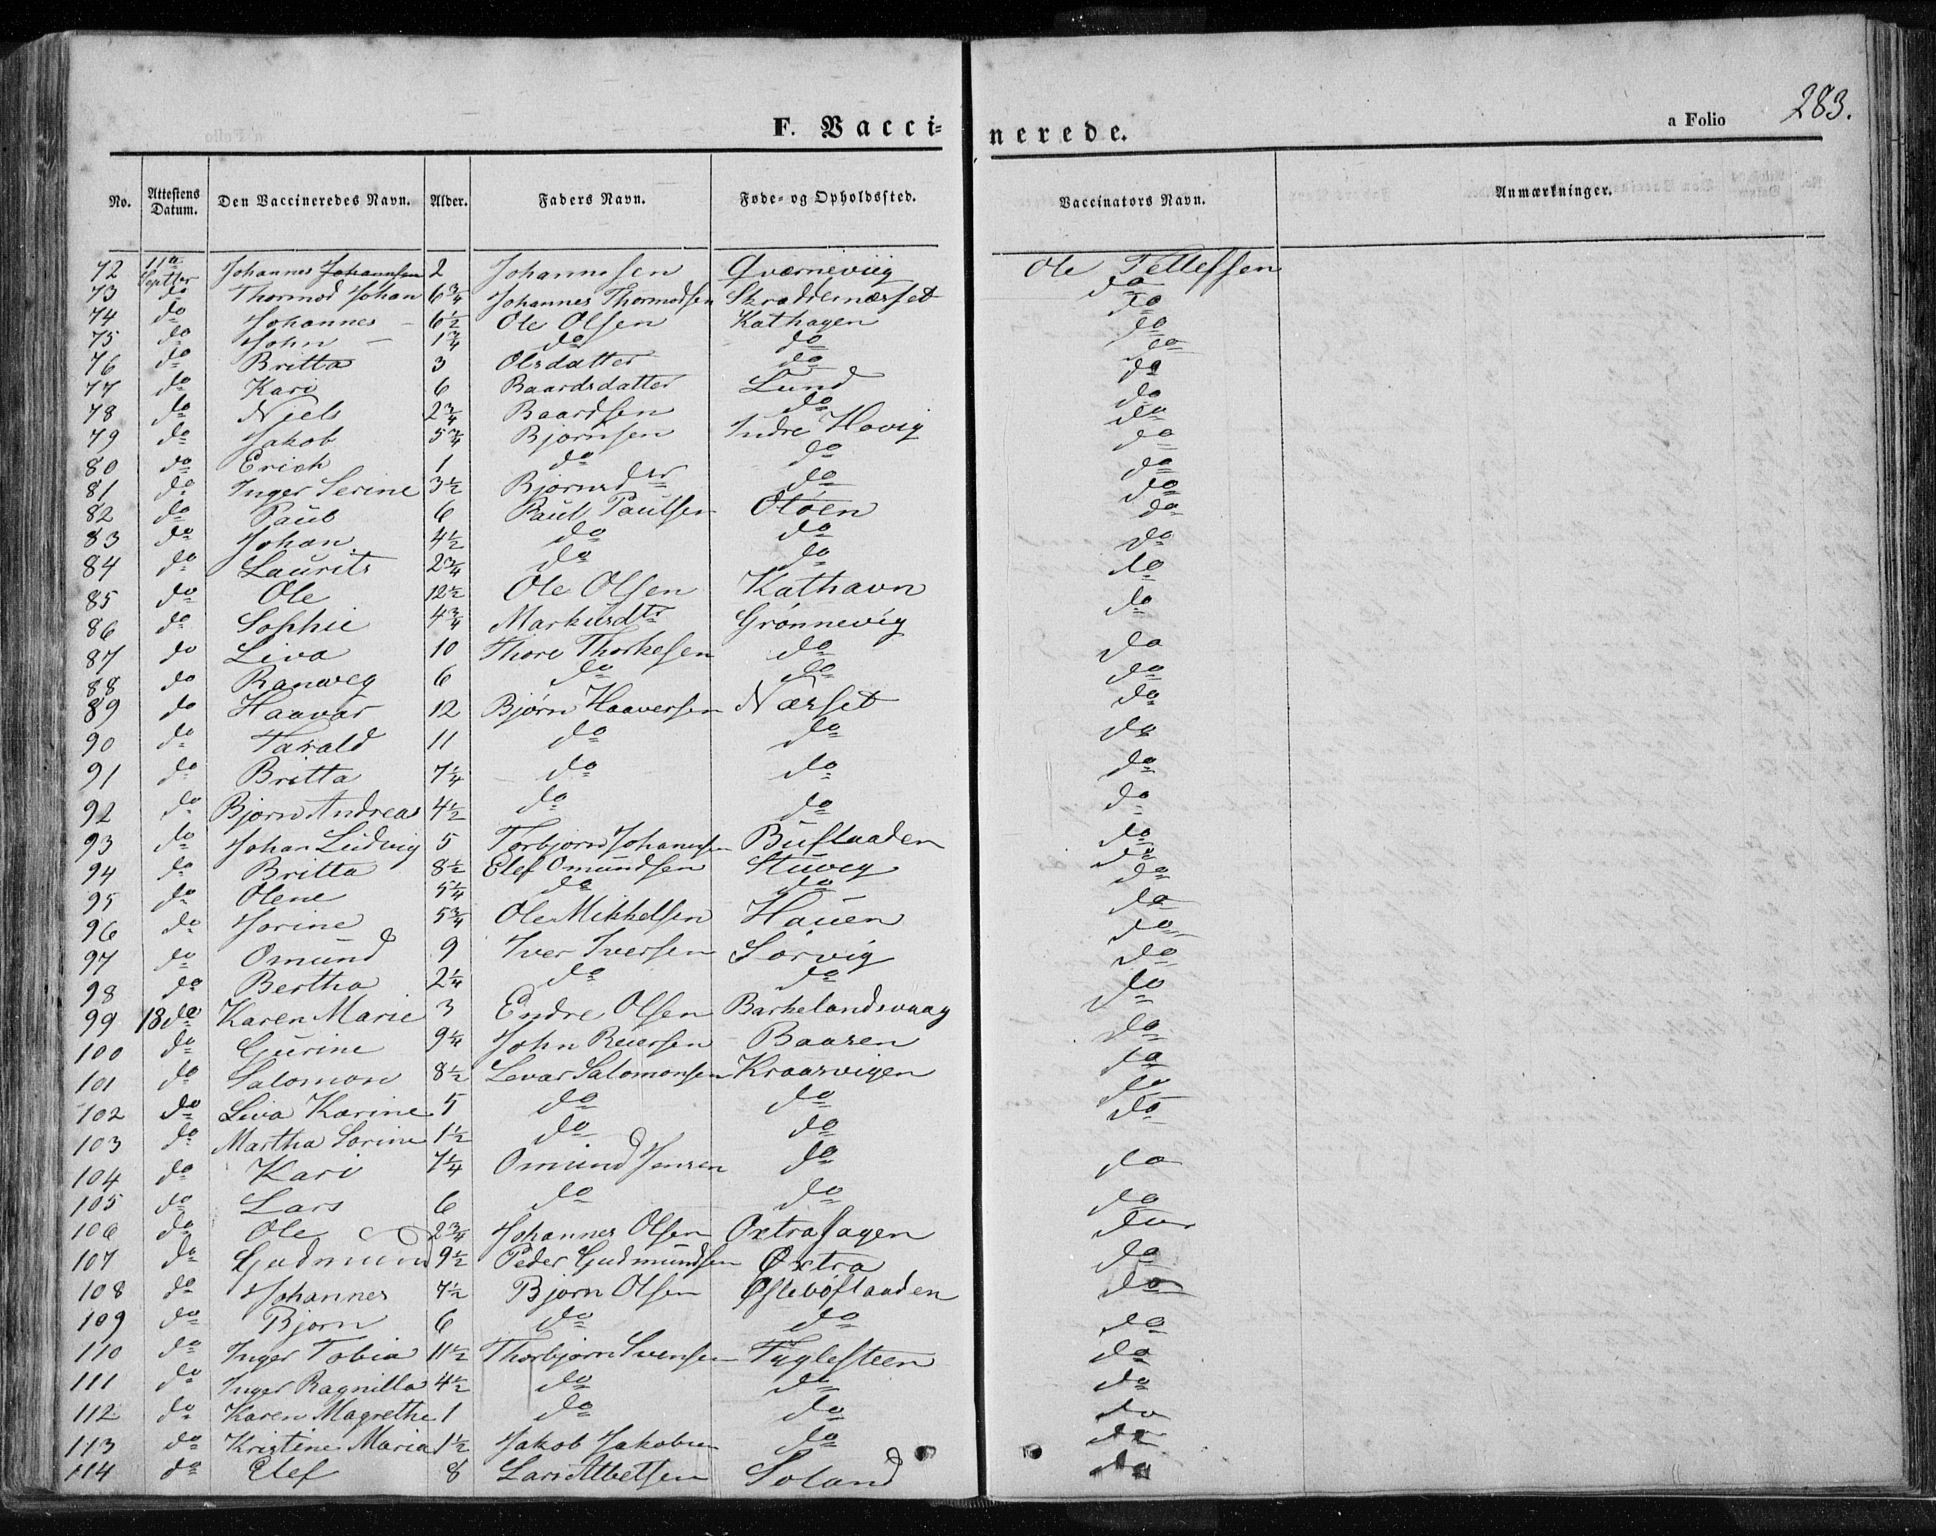 283.
F. Vacci-
nerede.
a Folio
No. Attestens Datum. Den Vaccineredes Navn. Alder. Faders Navn. Føde- og Opholdssted. Vaccinators Navn. Anmærkninger.
72 11te Septbr Johannes Johannsen 2 Johannesen Qværneviig Ole Tellefsen
73 do Thormod Johan 6 3/4 Johannes Thormodsen Skraddernæset do
74 do Johannes - 6 1/2 Ole Olsen Kathagen do
75 do John - 1 3/4 do do do
76 do Britta 3 Olsdatter do do
77 do Kari 6 Baardsdatter Lund do
78 do Niels 2 3/4 Baardsen do do
79 do Jakob 5 3/4 Bjørnsen Indre Hovig do
80 do Erich 1 do do do
81 do Inger Serine 3 1/2 Bjørnsdtr do do
82 do Paul 6 Paul Paulsen Otøen do
83 do Johan 4 1/2 do do do
84 do Laurits 2 3/4 do do do
85 do Ole 12 1/2 Ole Olsen Kathavn do
86 do Sophie 4 3/4 Markusdtr Grønnevig do
87 do Liva 10 Thore Thorkesen do do
88 do Ranveg 6 do do do
89 do Haavar 12 Bjørn Haaversen Nærset do
90 do Tarald 11 do do do
91 do Britta 7 1/4 do do do
92 do Bjørn Andreas 4 1/2 do do do
93 do Johan Ludvig 5 Torbjørn Johannsen Buflaaden do
94 do Britta 8 1/2 Elef Omundsen Stuveg do
95 do Olene 5 1/4 do do do
96 do Jorine 5 3/4 Ole Mikkelsen Hauen do
97 do Omund 9 Iver Iversen Sørvig do
98 do Bertha 2 1/4 do do do
99 18 do Karen Marie 3 Endre Olsen Barkelandsvaag do
100 do Gurine 9 1/4 John Reiersen Baaren do
101 do Salomon 8 1/2 Levar Salomonsen Kraarvigen do
102 do Liva Karine 5 do do do
103 do Martha Sorine 1 1/2 do do do
104 do Kari 7 1/4 Omund Jensen do do
105 do Lars 6 do do do
106 do Ole 2 3/4 Johannes Olsen Oxtrahagen do
107 do Gudmund 9 1/2 Peder Gudmundsen Øxtra do
108 do Johannes 7 1/2 Bjørn Olsen Østebøflaaden do
109 do Bjørn 6 do do do
110 do Inger Tobia 11 1/2 Thorbjørn Svensen Fuglesteen do
111 do Inger Ragnilla 4 1/2 do do do
112 do Karen Magrethe 1 do do do
113 do Kristine Maria 1 1/2 Jakob Jakobsen do do
114 do Elef 8 Lars Albetsen Soland do